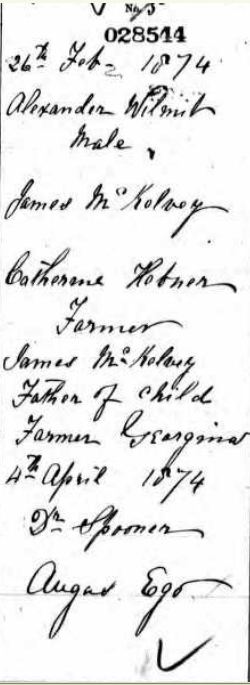 No 3
028514
26th Feb 1874
Alexander Wilmit
Male
James McKelvey
Catherine Hebner
Farmer
James McKelvey
Father of child
Farmer Georgina
4th April 1874
Dr Spooner
Angus Ego